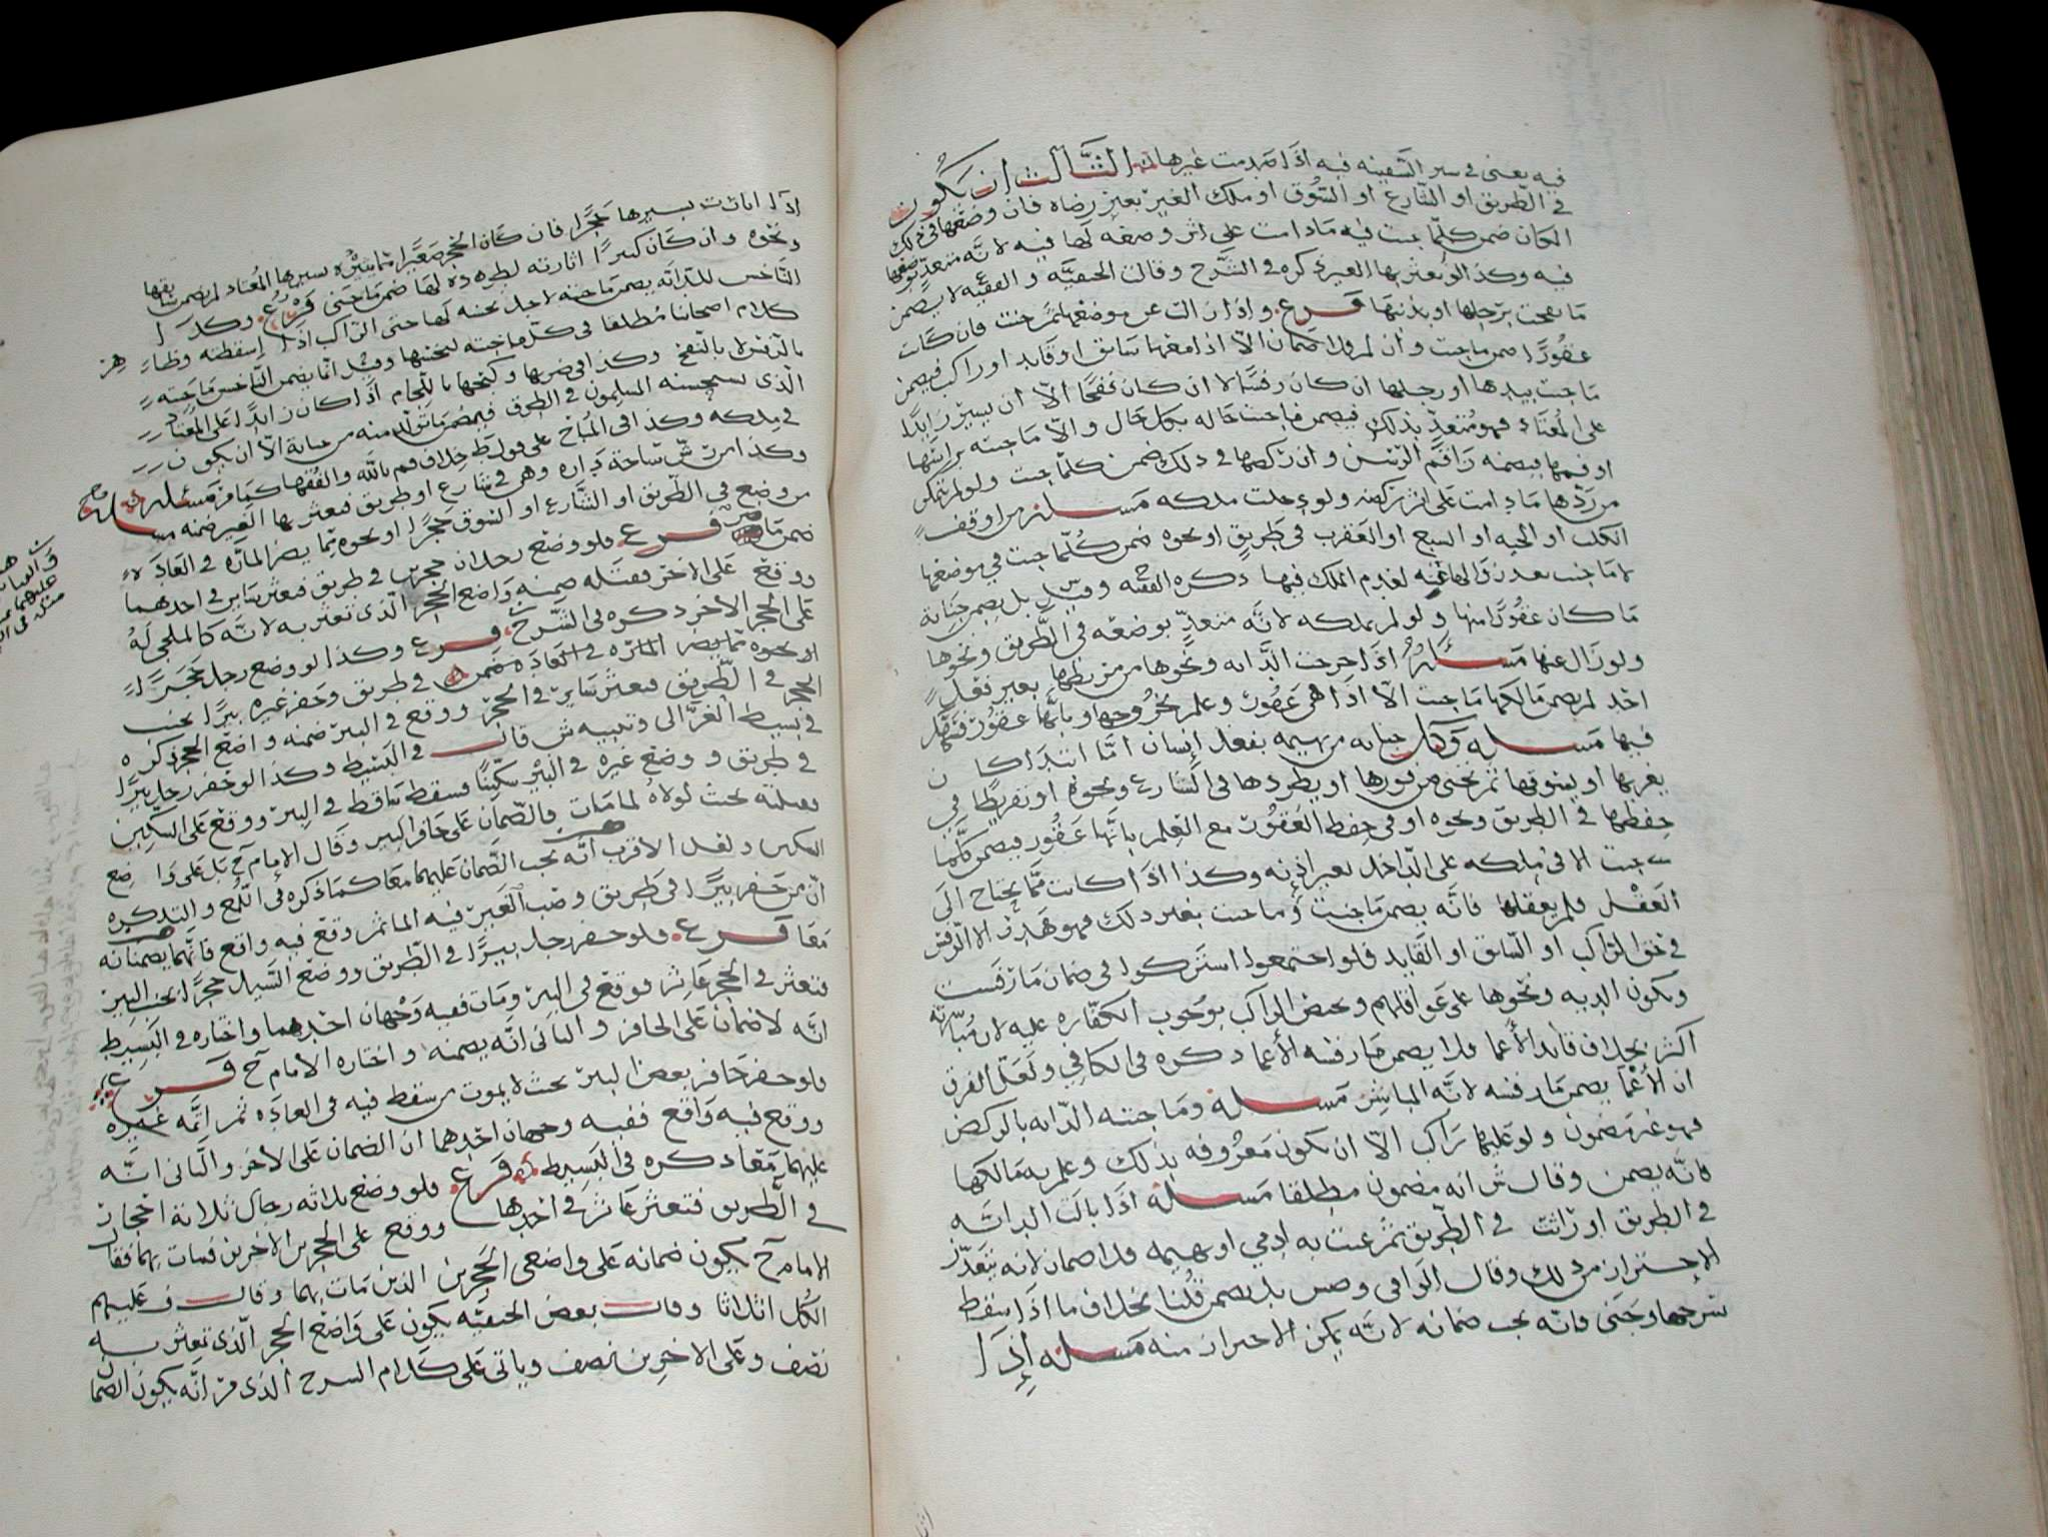 فيه يعني في سير السفينه فيه اذا صدمت غيرها الثالث ان يكون
في الطريق او الشارع او السوق او ملك الغير بغير رضاه فان وضعها في ذلك
المكان ضمن كلما جنت فيه مادامت على اثر وضعه لها فيه لانه متعدٍ بوضعها
فيه وكذا لو تعثر بها الغير ذكره في الشرح وقالت الحنفيه و الفقيه لا يضمن
ما نفحت برجلها او بذنبها فرع واذا زالت عن موضعها ثم جنت فان كانت
عقورًا ضمن ما جنت وان لم فلا ضمان الا اذا معها سايق او قايد او راكب فيضمن
ما جنت بيدها او رجلها ان كان رفسًا لا ان كان نفحًا الا ان يسير زايدًا
على المعتاد فهو متعدٍ بذلك فيضمن ما جنت حاله بكل حال والا ما جنته براسها
او فمها فيضمنه راقم الرفس وان ركضها في ذلك ضمن كلما جنت ولو لم يتمكن
من ردها مادامت على اثر ركضه ولو دخلت ملكه مسله من اوقف
الكلب او الحيه او السبع او العقرب في طريق او نحوه ضمن كلما جنت في موضعها
لا ما جنت بعد زوالها عنه لعدم الملك فيها ذكره الفقيه وقيل بل يضمن جنايه
ما كان عقورًا منها ولو لم يملكه لانه متعدٍ بوضعه في الطريق ونحوها
ولو زال عنها مسئله اذا خرجت الدابه ونحوها من مربطها بغير فعل
احد لم يضمن مالكها ما جنت الا اذا هي عقور وعلم بخروجها وبانها عقور
فيها مسله وكل جنايه من بهيمه بفعل انسان اما ابتدا كان
يغريها او يسوقها ثم تجني من فورها او يطردها في الشارع ونحوه او تفريطًا في
حفظها في الطريق ونحوه او في حفظ العقور مع العلم بانها عقور فيضمن كلما
جنت الا في ملكه على الداخل بغير اذنه وكذا اذا كانت مما يحتاج الى
العقل فلم يعقلها فانه يضمن ما جنت وما جنت بغير ذلك فهو هدر الا الرفس
في حق الراكب او السايق او القايد فلو اجتمعوا اشتركوا في ضمان ما رفست
وتكون الديه ونحوها على عواقلهم ويختص الراكب بوجوب الكفاره عليه لان مباشرته
اكثر بخلاف قايد الأعما فلا يضمن ما رفسه الأعما ذكره في الكافي ولعل الفرق
ان الأعما يضمن ما رفسه لانه المباشر مسله وما جنته الدابه بالركض
فهو غير مضمون ولو عليها راكب الا ان تكون معروفه بذلك وعلم به مالكها
فانه يضمن وقال ش انه مضمون مطلقا مسله اذا بالت الدابه
في الطريق او راثت في الطريق ثم عنت به ادمي او بهيمه فلا ضمان لانه يتعذر
الاحتراز من ذلك وقال الوافي وص بل يضمن قلنا بخلاف ما اذا سقط
سرجها وجنى فانه يجب ضمانه لانه يمكن الاحتراز منه مسله إذا
اذا اثارت بسيرها حجرا فان كان الحجر صغيرا مما يثيره سيرها المعتاد لم يضمن سايقها
ونحوه وان كان كبيرًا اثارته لطرده لها ضمن ما جنى فرع وكذا
الناخس للدابه يضمن ما جنته لاجل نخسه لها حتى الراكب اذا اسقطته وظاهر
كلام اصحابنا مطلقا في كل ما جنته لنخسها وقيل انما يضمن الناخس ما جنته
بالرفس لا بالنفح وكذا في ضربها وكبحها باللجام اذا كان زايدًا على المعتاد
الذي يستحسنه المسلمون في الطرق فيضمن ما تولد منه من جناية الا ان يكون
في ملكه وكذا في المباح على قول ط خلاف م بالله والفقها كما مر مسله
وكذا من رش ساحة داره وهي في شارع او طريق فعثر بها الغير ضمنه مسله
من وضع في الطريق او الشارع او السوق حجرًا او نحوه مما يضر الماره في العاده
ضمن ما فرع فلو وضع رجلان حجرين في طريق فعثر سايرٌ في احدهما
ووقع على الاخر فقتله ضمنه واضع الحجر الذي تعثر به لانه كالملجي له
على الحجر الاخر ذكره في الشرح فرع وكذا لو وضع رجل حجرًا
او نحوه مما يضر الماره في العاده ضمن في طريق وحفر غيره بيرًا بجنب
الحجر في الطريق فعثر ساير في الحجر ووقع في البير ضمنه واضع الحجر ذكره
في بسيط الغزالي وتنبيه ش قال في البسيط وكذا لو حفر رجل بيرًا
في طريق ووضع غيره في البير سكينًا فسقط ساقط في البير ووقع على السكين
فقتلته بحيث لولاه لما مات فالضمان على حافر البير وقال الإمام ح بل على واضع
السكين ولعل الاقرب انه يجب الضمان عليهما معا كما ذكره في اللمع والتذكره
ان من حفر بيرًا في طريق وصب الغير فيه الما ثم وقع فيه واقع فانهما يضمنانه
معا فرع فلو حفر رجل بيرًا في الطريق ووضع السيل حجرًا بجنب البير
فتعثر في الحجر عاثر فوقع في البير ومات ففيه وجهان احدهما واختاره في البسيط
انه لا ضمان على الحافر والثاني انه يضمنه واختاره الامام ح فرع
فلو حفر حافر بعض البير بحيث لا يموت من سقط فيه في العاده ثم اتمه غيره
ووقع فيه واقع ففيه وجهان احدهما ان الضمان على الاخر والثاني انه
عليهما معا ذكره في البسيط فرع فلو وضع ثلاثه رجال ثلاثة احجار
في الطريق فتعثر عاثر في احدها ووقع على الحجرين الاخرين فمات بهما فقال
الامام ح يكون ضمانه على واضعي الحجرين الذين مات بهما وقال ف عليهم
الكل اثلاثا وقال بعض الحنفيه يكون على واضع الحجر الذي تعثر به
نصف وعلى الاخرين نصف وياتي على كلام الشرح الذي مر انه يكون الضمان